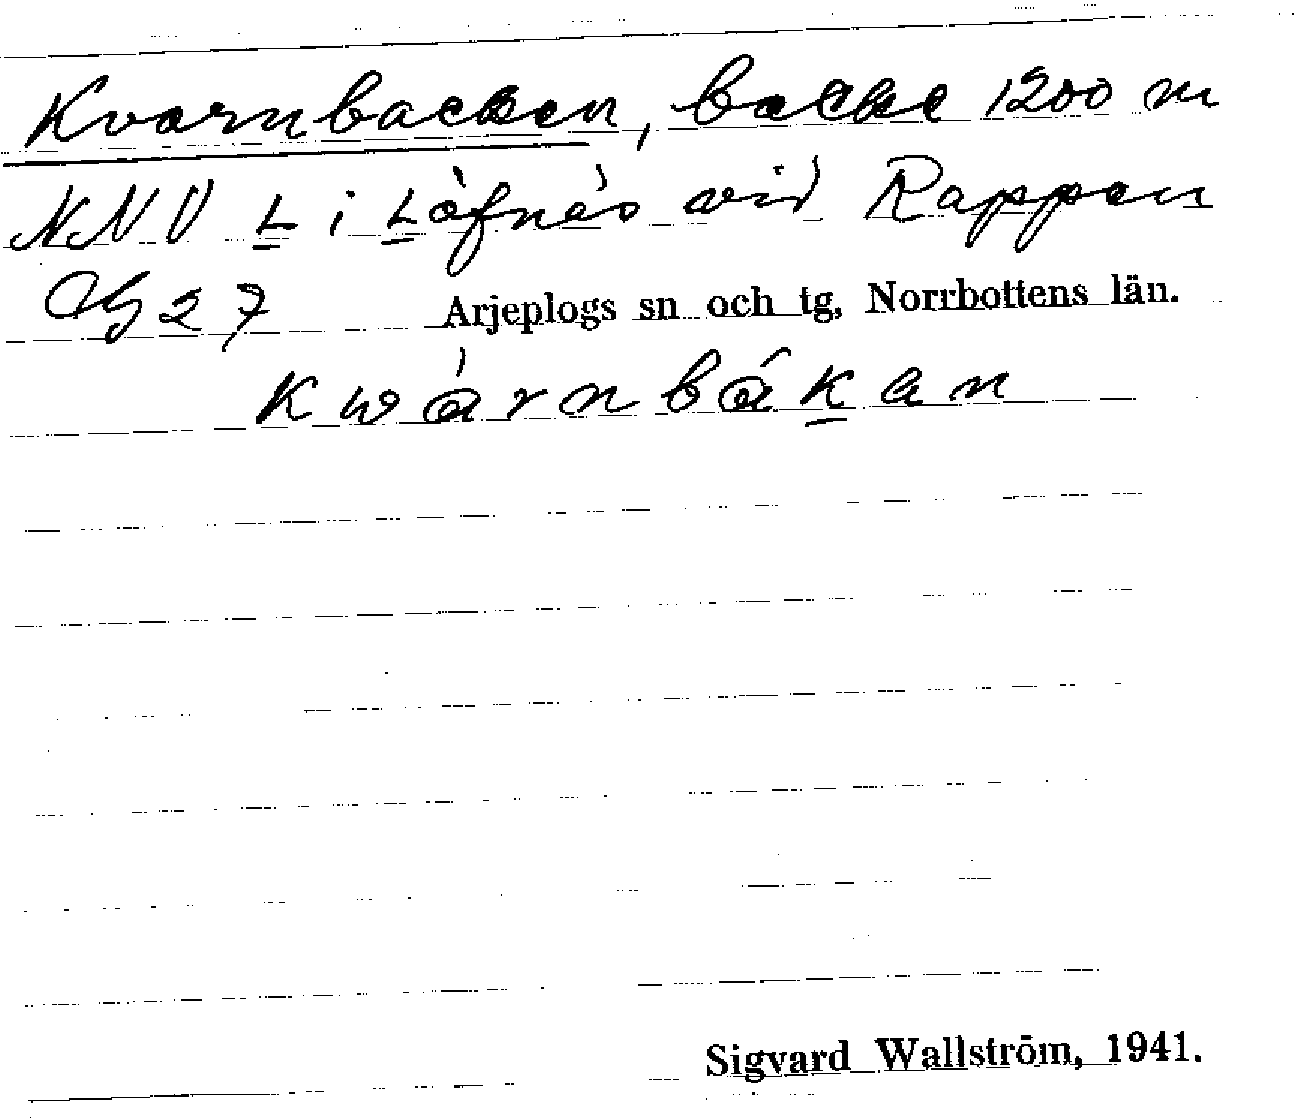 Kvarnbacken, backe 1200 m
NNV L i Löfnäs vid Rappen
27 Arjeplogs sn och tg, Norrbottens län.
Kwárnbákan
Sigvard Wallström, 1941.